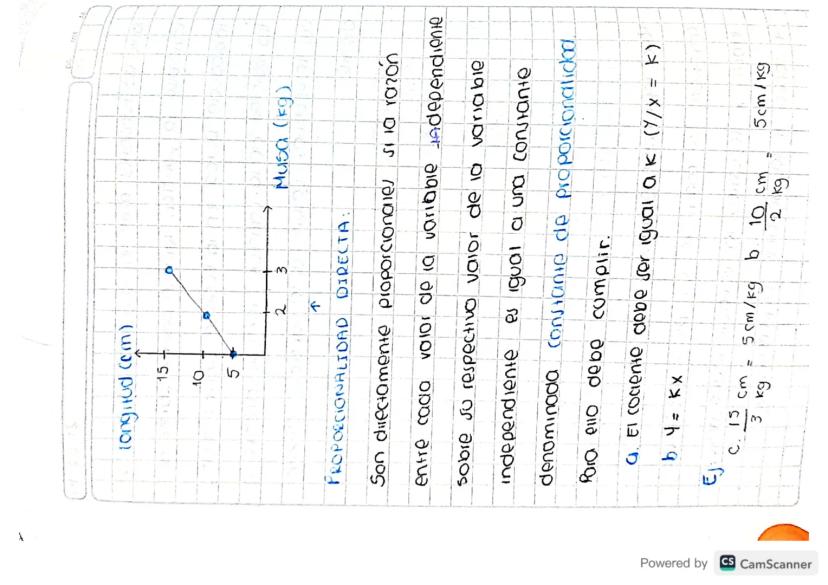 Longitud (cm)
15
10
5
2
3
Masa (kg)
PROPORCIONALIDAD DIRECTA:
Son directamente proporcionales si la razón
entre cada valor de la variable dependiente
sobre su respectivo valor de la variable
independiente es igual a una constante
denominada constante de proporcionalidad
Para ello debe cumplir.
a. El cociente debe ser igual a K (Y/X = K)
b. Y = KX
Ej
c. 15/3 cm/kg = 5cm/kg b 10/2 cm/kg = 5cm/kg
Powered by CS CamScanner